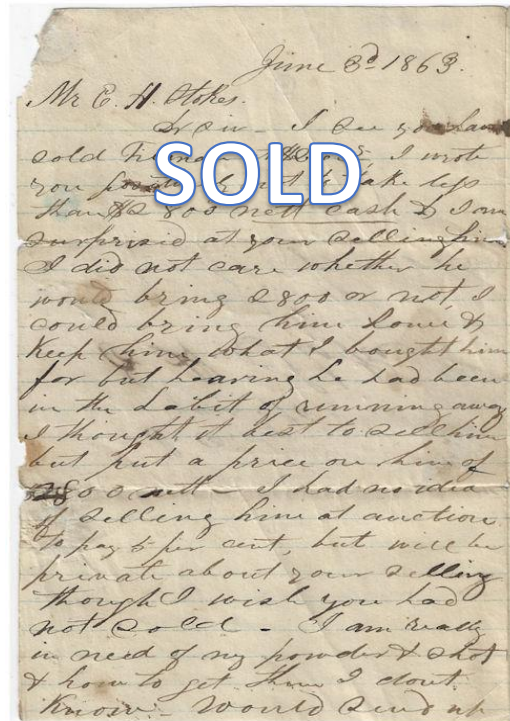 June 3d 1863.
Mr E. H. Stokes.
Dr sir - I see you have
sold
SOLD
I wrote
you not to take less
than $2800 nett cash & I am
surprised at your selling him
I did not care whether he
would bring 2800 or not, I
could bring him home &
Keep him, what I bought him
for but hearing he had been
in the habit of running away
I thought it best to sell him
but put a price on him of
2800 nett - I had no idea
of selling him at auction
to pay 5 per cent, but will be
private about your selling
though I wish you had
not sold - I am really
in need of my powder & shot
& how to get them I dont
Know - Would send up